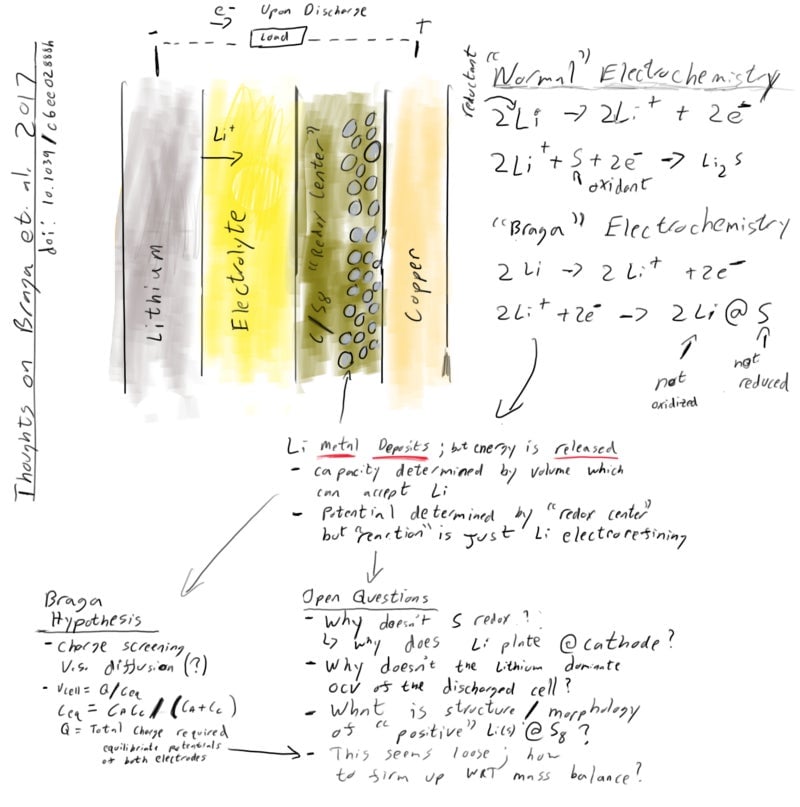 Thoughts on Braga et. al. 2017
doi: 10.1039/c6ee02888h
e- Upon Discharge
- Load +
Lithium
Li+
Electrolyte
C/S8 "Redox Center"
Copper
"Normal" Electrochemistry
reductant
2Li → 2Li+ + 2e-
2Li+ + S + 2e- → Li2S
oxidant
"Braga" Electrochemistry
2 Li → 2 Li+ + 2e-
2Li+ + 2e- → 2 Li @ S
not oxidized
not reduced
Li metal Deposits ; but energy is released
- capacity determined by volume which
can accept Li
- Potential determined by "redox center"
but "reaction" is just Li electrorefining
Braga
Hypothesis
- Charge screening
v.s. diffusion (?)
- Vcell = Q/Ceq
Ceq = CACc / (CA+Cc)
Q = Total charge required
equilibriate potentials
of both electrodes
Open Questions
- Why doesn't S redox?
↳ why does Li plate @ cathode?
- Why doesn't the Lithium dominate
OCV of the discharged cell?
- What is structure / morphology
of "positive" Li(s) @ S8 ?
- This seems loose; how
to firm up WRT mass balance?